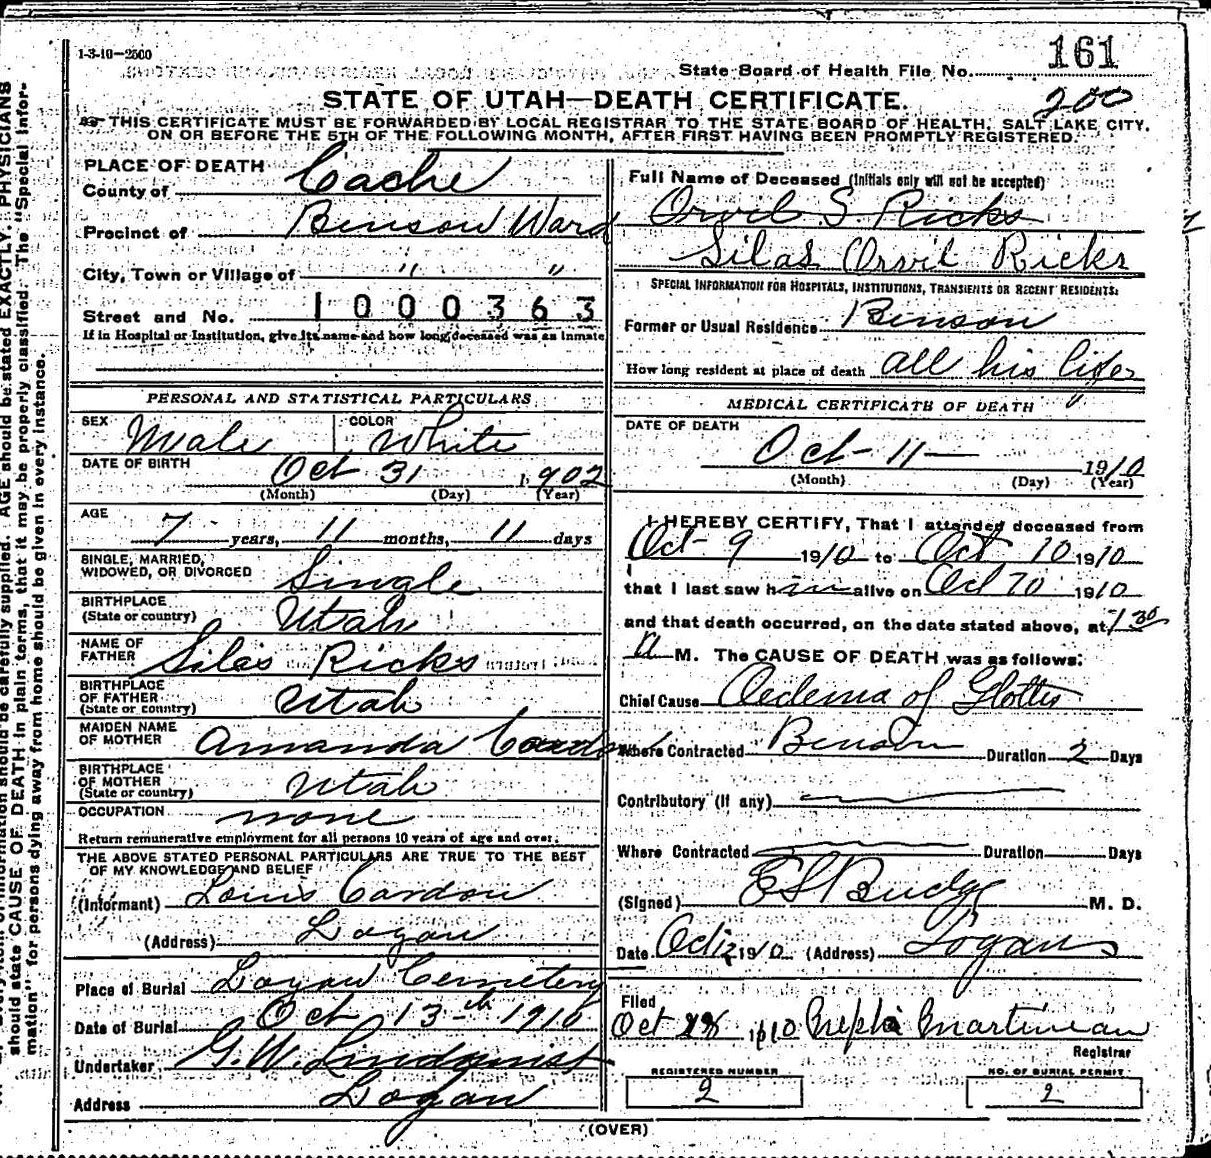 1-3-10—2500
State Board of Health File No. 161
200
STATE OF UTAH—DEATH CERTIFICATE.
THIS CERTIFICATE MUST BE FORWARDED BY LOCAL REGISTRAR TO THE STATE BOARD OF HEALTH, SALT LAKE CITY,
ON OR BEFORE THE 5TH OF THE FOLLOWING MONTH, AFTER FIRST HAVING BEEN PROMPTLY REGISTERED.
PLACE OF DEATH
County of Cache
Precinct of Binson Ward
City, Town or Village of " "
Street and No. 1000363
If in Hospital or Institution, give its name and how long deceased was an inmate
PERSONAL AND STATISTICAL PARTICULARS
SEX Male COLOR White
DATE OF BIRTH Oct 31 1902
(Month) (Day) (Year)
AGE 7 years, 11 months, 11 days
SINGLE, MARRIED,
WIDOWED, OR DIVORCED Single
BIRTHPLACE
(State or country) Utah
NAME OF
FATHER Silas Ricks
BIRTHPLACE
OF FATHER
(State or country) Utah
MAIDEN NAME
OF MOTHER Amanda Cardon
BIRTHPLACE
OF MOTHER
(State or country) Utah
OCCUPATION none
Return remunerative employment for all persons 10 years of age and over.
THE ABOVE STATED PERSONAL PARTICULARS ARE TRUE TO THE BEST
OF MY KNOWLEDGE AND BELIEF
(Informant) Louis Cardon
(Address) Logan
Place of Burial Logan Cemetery
Date of Burial Oct 13th 1910
Undertaker G. W. Lindquist
Address Logan
Full Name of Deceased (Initials only will not be accepted)
Orvil S. Ricks
Silas Orvil Ricks
SPECIAL INFORMATION FOR HOSPITALS, INSTITUTIONS, TRANSIENTS OR RECENT RESIDENTS:
Former or Usual Residence Binson
How long resident at place of death all his life
MEDICAL CERTIFICATE OF DEATH
DATE OF DEATH
Oct - 11 — 1910
(Month) (Day) (Year)
I HEREBY CERTIFY, That I attended deceased from
Oct - 9 1910 to Oct 10 1910
that I last saw him alive on Oct 10 1910
and that death occurred, on the date stated above, at 1 30
a M. The CAUSE OF DEATH was as follows:
Chief Cause Oedema of Glottis
Where Contracted Benson Duration 2 Days
Contributory (if any)
Where Contracted Duration Days
(Signed) Budge M. D.
Date Oct 12 1910 (Address) Logan
Filed
Oct 1910 Martineau
Registrar
REGISTERED NUMBER
2
NO. OF BURIAL PERMIT
2
(OVER)
should state CAUSE OF DEATH in plain terms, that it may be properly classified. The "Special Infor-
mation" for persons dying away from home should be given in every instance.